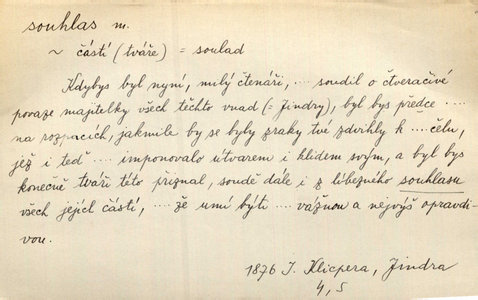 souhlas m.
~ částí (tváře) = soulad
Kdybys byl nyní, milý čtenáři, ... soudil o čtveračivé
povaze majitelky všech těchto vnad (= Jindry), byl bys předce ....
na rozpacích, jakmile by se byly zraky tvé zdvihly k .... čelu,
jež i teď .... imponovalo útvarem i klidem svým, a byl bys
konečně tváři této přiznal, soudě dále i z líbezného souhlasu
všech jejích částí, .... že umí býti .... vážnou a nejvýš opravdi-
vou.
1876 J. Klicpera, Jindra
4, 5